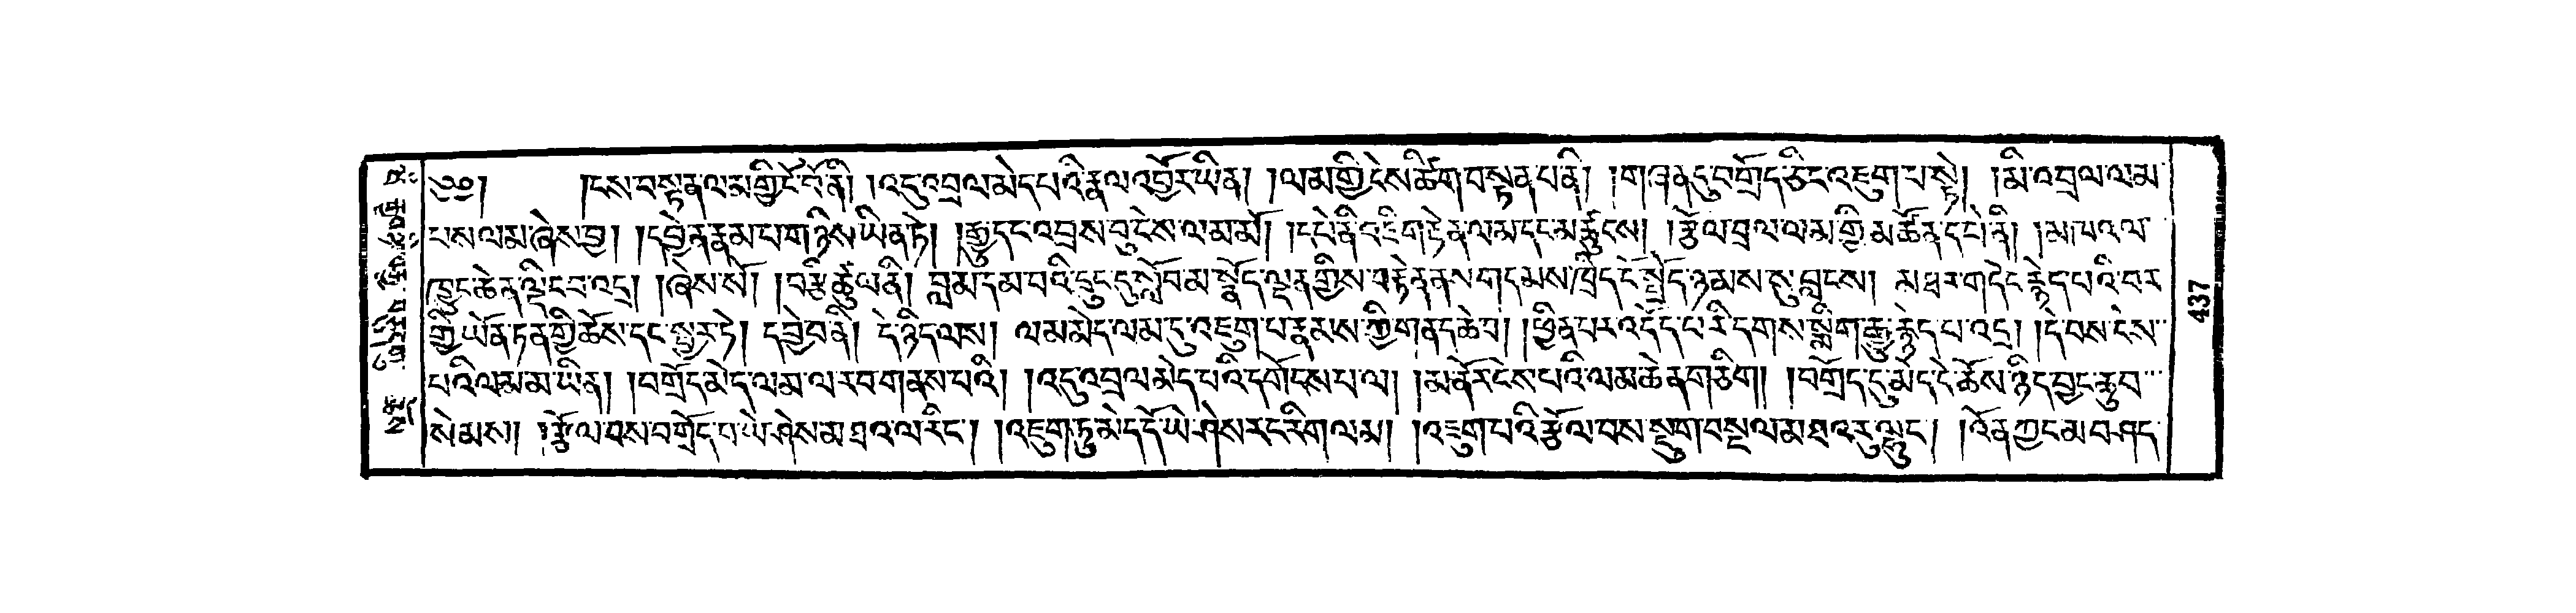 ༄༅། །ངས་བསྟན་ལམ་གྱི་ངོ་བོ་ནི། །འདུ་འབྲལ་མེད་པའི་རྣལ་འབྱོར་ཡིན། །ལམ་གྱི་ངེས་ཚིག་བསྟན་པ་ནི། །གཞན་དུ་བགྲོད་ཅིང་འཇུག་པ་སྟེ། །མི་འབྲལ་ལམ་
པས་ལམ་ཞེས་བྱ། །དབྱེ་ན་རྣམ་པ་གཉིས་ཡིན་ཏེ། །རྒྱུ་དང་འབྲས་བུ་ངེས་ལམ་མོ། །དཔེ་ནི་ རྟེན་ལམ་དང་མཚུངས། །རྩོལ་བྲལ་ལམ་གྱི་མཚོན་དཔེ་ནི། །མཁའ་ལ་
ཁྱུང་ཆེན་ལྡིང་བ་འདྲ། །ཞེས་སོ། །བརྩི་ཚུལ་ནི། བླམ་དམ་པའི་དྲུང་དུ་སློབ་མ་སྣོད་ལྡན་གྱིས་བརྟེན་ནས་གདམས་ཁྲིད་ངོ་སྤྲོད་ཉམས་སུ་བླངས། མཐར་གདེང་རྙེད་པའི་བར་
གྱི་ཡོན་ཏན་གྱི་ཆོས་དང་སྦྱར་ཏེ། དབྱེ་བ་ནི། དེ་ཉིད་ལས། ལམ་མེད་ལམ་དུ་འཇུག་པ་རྣམས་ཀྱི་གནད་ཆེ་བ། །ཕྱིན་པར་འདོད་པ་རི་དགས་སྨིག་རྒྱུ་རྙེད་པ་འདྲ། །དེ་བས་ངེས་
པའི་ལམ་མ་ཡིན། །བགྲོད་མེད་ལམ་ལ་རབ་གནས་པའི། །འདུ་འབྲལ་མེད་པའི་དགོངས་པ་ལ། །མ་ནོར་ངེས་པའི་ལམ་ཆེན་གཅིག །བགྲོད་དུ་མེད་དེ་ཆོས་ཉིད་བྱང་ཆུབ་
སེམས། །རྩོལ་བས་བགྲོད་པ་ཡེ་ཤེས་མཐའ་ལ་རིང་། །འཇུག་ཏུ་མེད་དོ་ཡེ་ཤེས་རང་རིག་ལམ། །འཇུག་པའི་རྩོལ་བས་སྡུག་བསྔལ་མཐའ་རུ་ལྷུང་། །འོན་ཀྱང་མ་བཤད་
437